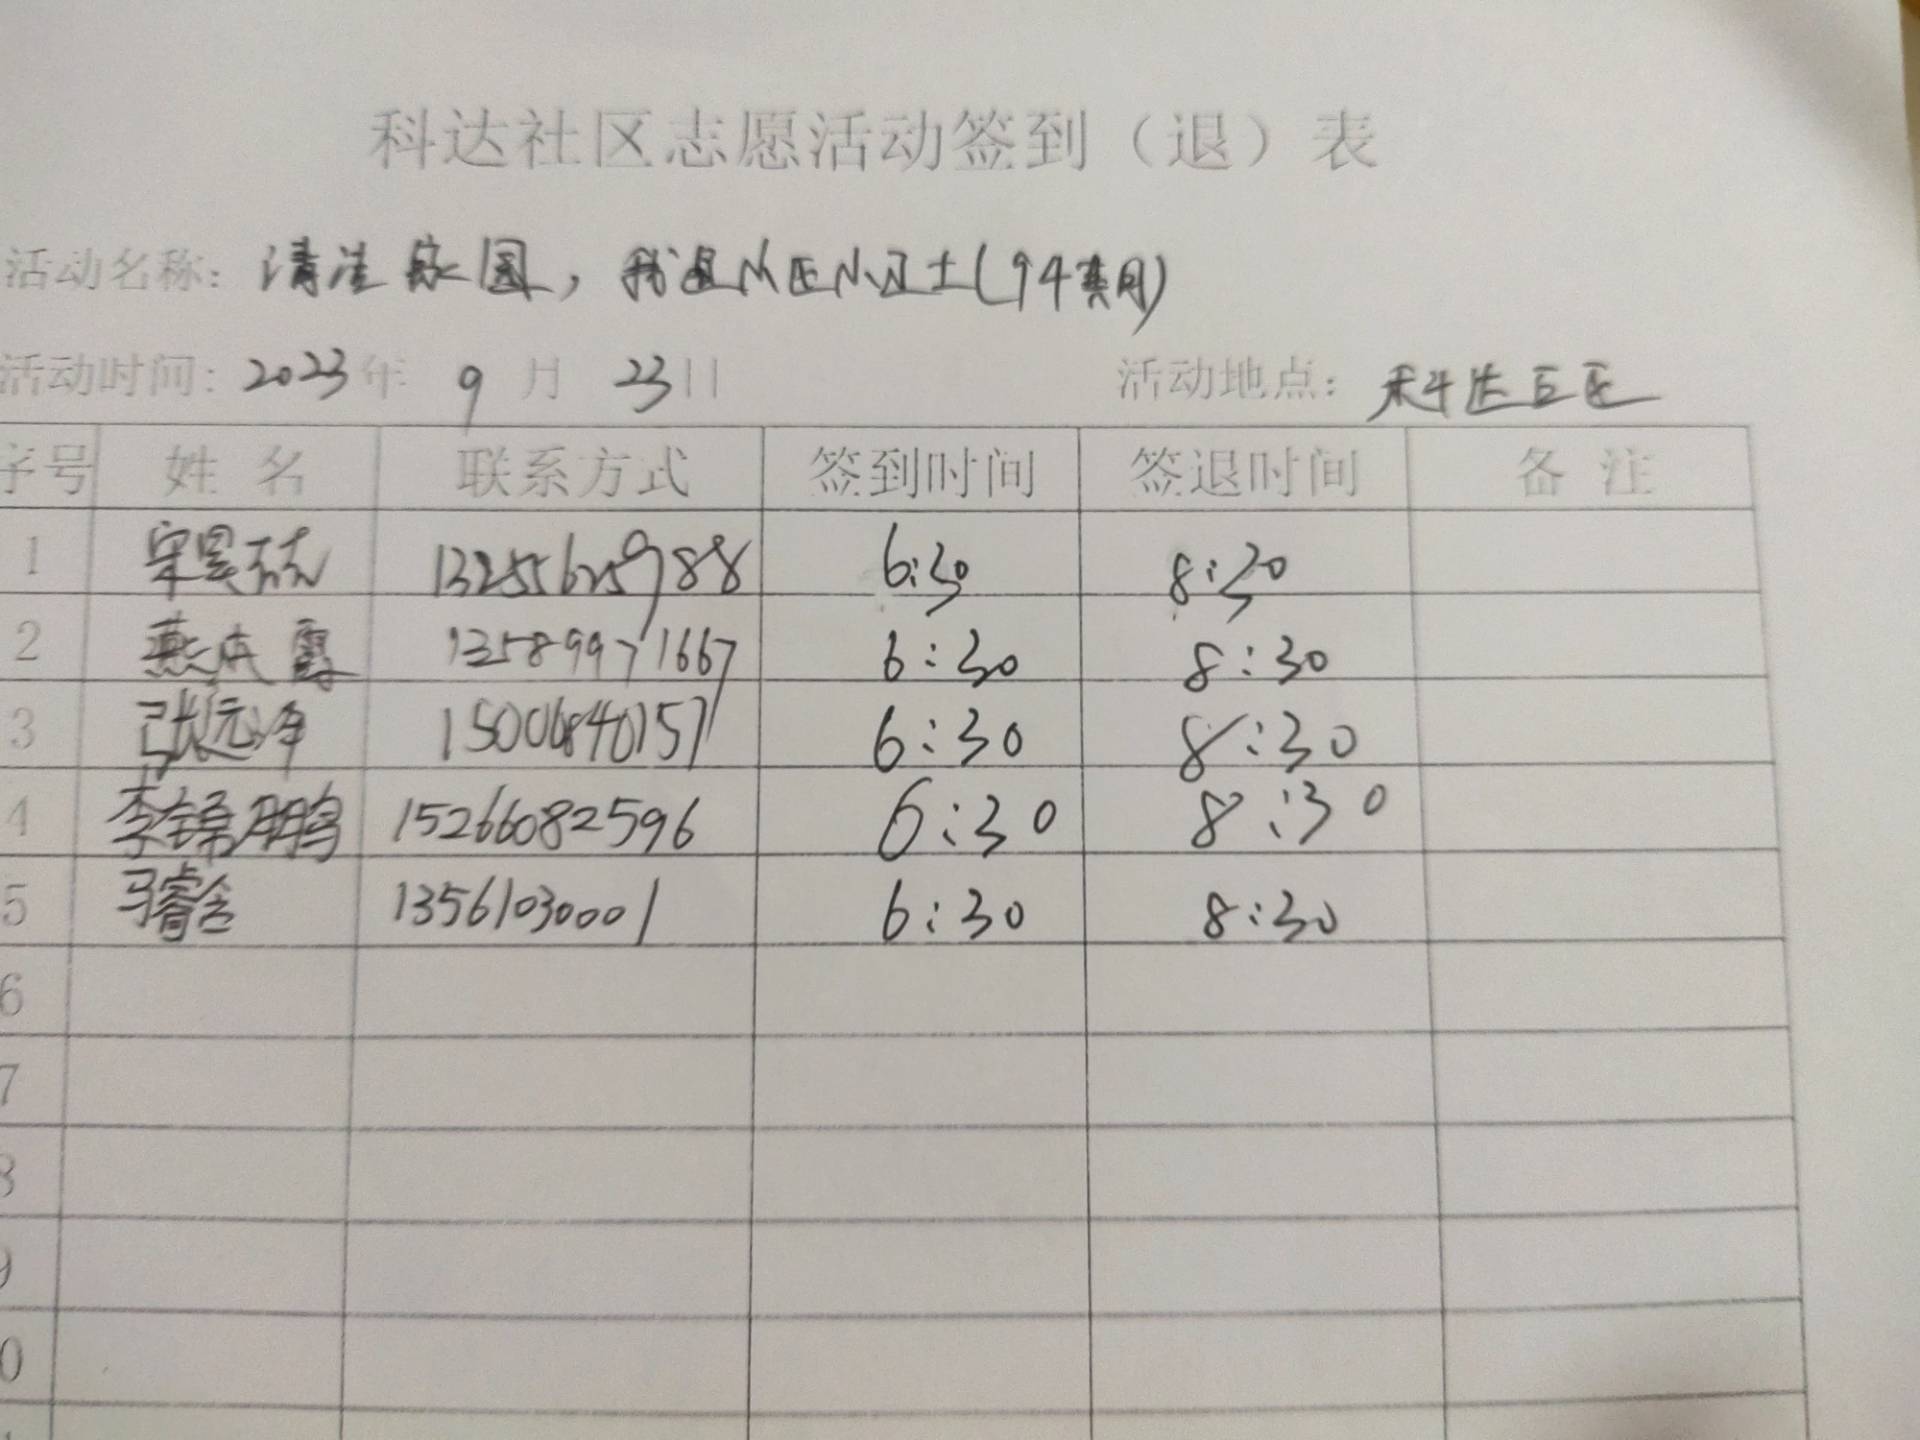 科达社区志愿活动签到（退）表
活动名称：清洁家园，我是小区小卫士(94其月)
活动时间：2023年 9 月 23日 活动地点：科达社区
序号 姓 名 联系方式 签到时间 签退时间 备 注
1 宋昊 13255625988 6:30 8:30
2 燕 霞 13589971667 6:30 8:30
3 张远净 15006840157 6:30 8:30
4 李锦鹏 15266082596 6:30 8:30
5 马睿含 13561030001 6:30 8:30
6
7
8
9
0